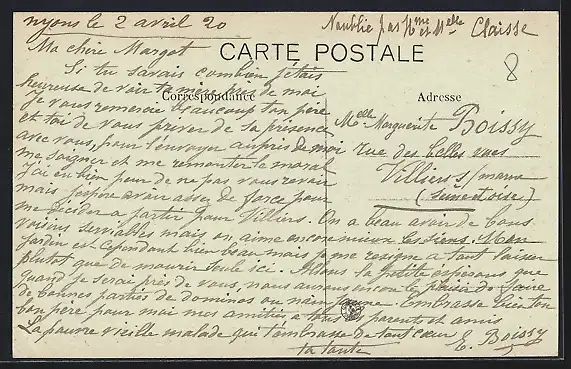 nyons le 2 avril 20
N'oublie pas Mme et Melle Claisse
CARTE POSTALE
8
Correspondance
Adresse
Ma chère Margot
Si tu savais combien j'étais
heureuse de voir ta mère près de moi
Je vous remercie beaucoup ton père
et toi de vous priver de sa présence
avec vous, pour l'envoyer auprès de moi
me soigner et me remonter le moral
j'ai eu bien peur de ne pas vous revoir
mais j'espère avoir assez de force pour
me décider a partir pour Villiers. On a beau avoir de bons
voisins serviables mais on aime encore mieux les siens. Mon
jardin est cependant bien beau mais je me resigne a tout laisser
plutot que de mourir seule ici. Allons la petite esperons que
quand je serai près de vous, nous aurons encore le plaisir de faire
de bonnes parties de dominos ou nain jaune. Embrasse bien ton
bon père pour moi mes amitiés a tous parents et amis
La pauvre vieille malade qui t'embrasse de tout cœur
ta tante
E. Boissy
Melle Marguerite Boissy
rue des belles vues
Villiers s/marne
(Seine et oise)